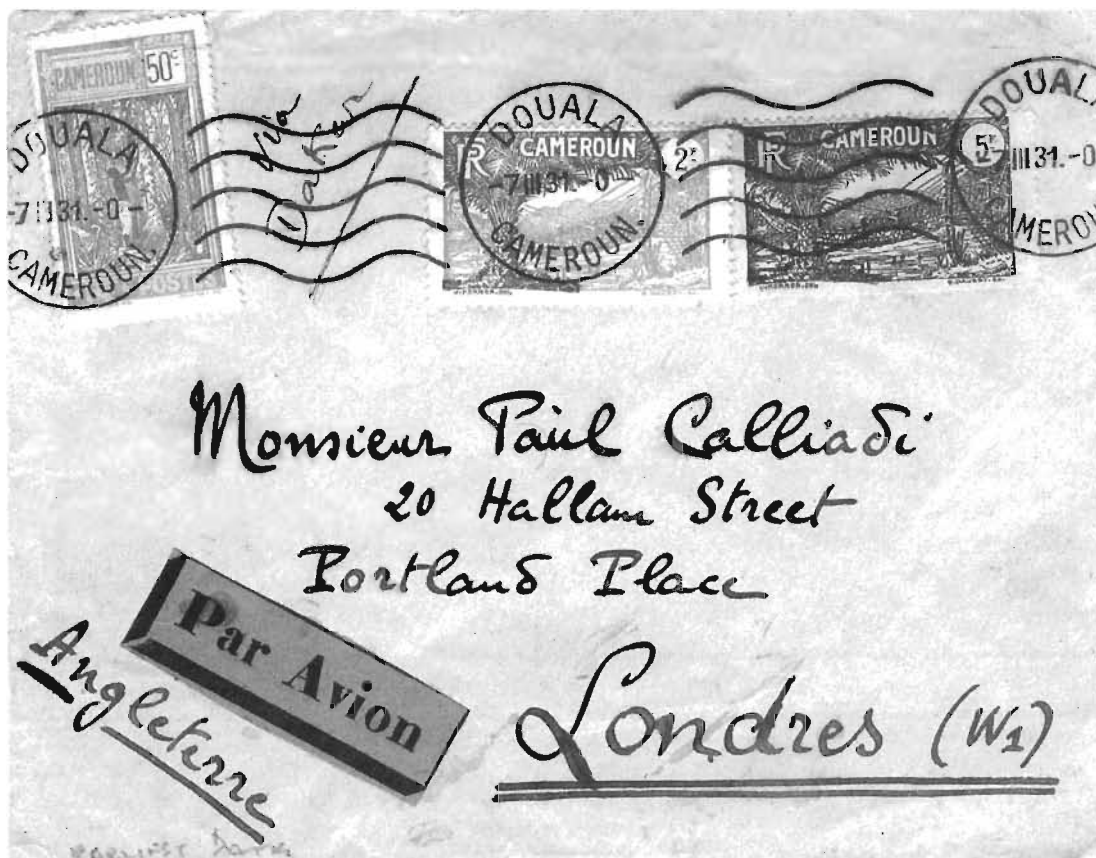 CAMEROUN 50c
POSTES
DOUALA
-7 III 31.-0-
CAMEROUN.
Via
Dakar
RF CAMEROUN 2F
DOUALA
-7 III 31.-0
CAMEROUN.
RF CAMEROUN 5F
DOUALA
III 31.-0
CAMEROUN
Monsieur Paul Calliadi
20 Hallam Street
Portland Place
Par Avion
Angleterre
Londres (W1)